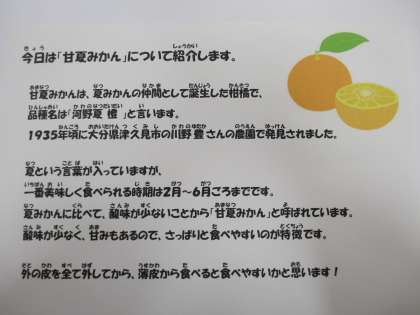 今日は「甘夏みかん」について紹介します。
甘夏みかんは、夏みかんの仲間として誕生した柑橘で、
品種名は「河野夏 橙 」と言います。
1935年頃に大分県津久見市の川野 豊 さんの農園で発見されました。
夏という言葉が入っていますが、
一番美味しく食べられる時期は2月〜6月ごろまでです。
夏みかんに比べて、酸味が少ないことから「甘夏みかん」と呼ばれています。
酸味が少なく、甘みもあるので、さっぱりと食べやすいのが特徴です。
外の皮を全て外してから、薄皮から食べると食べやすいかと思います！